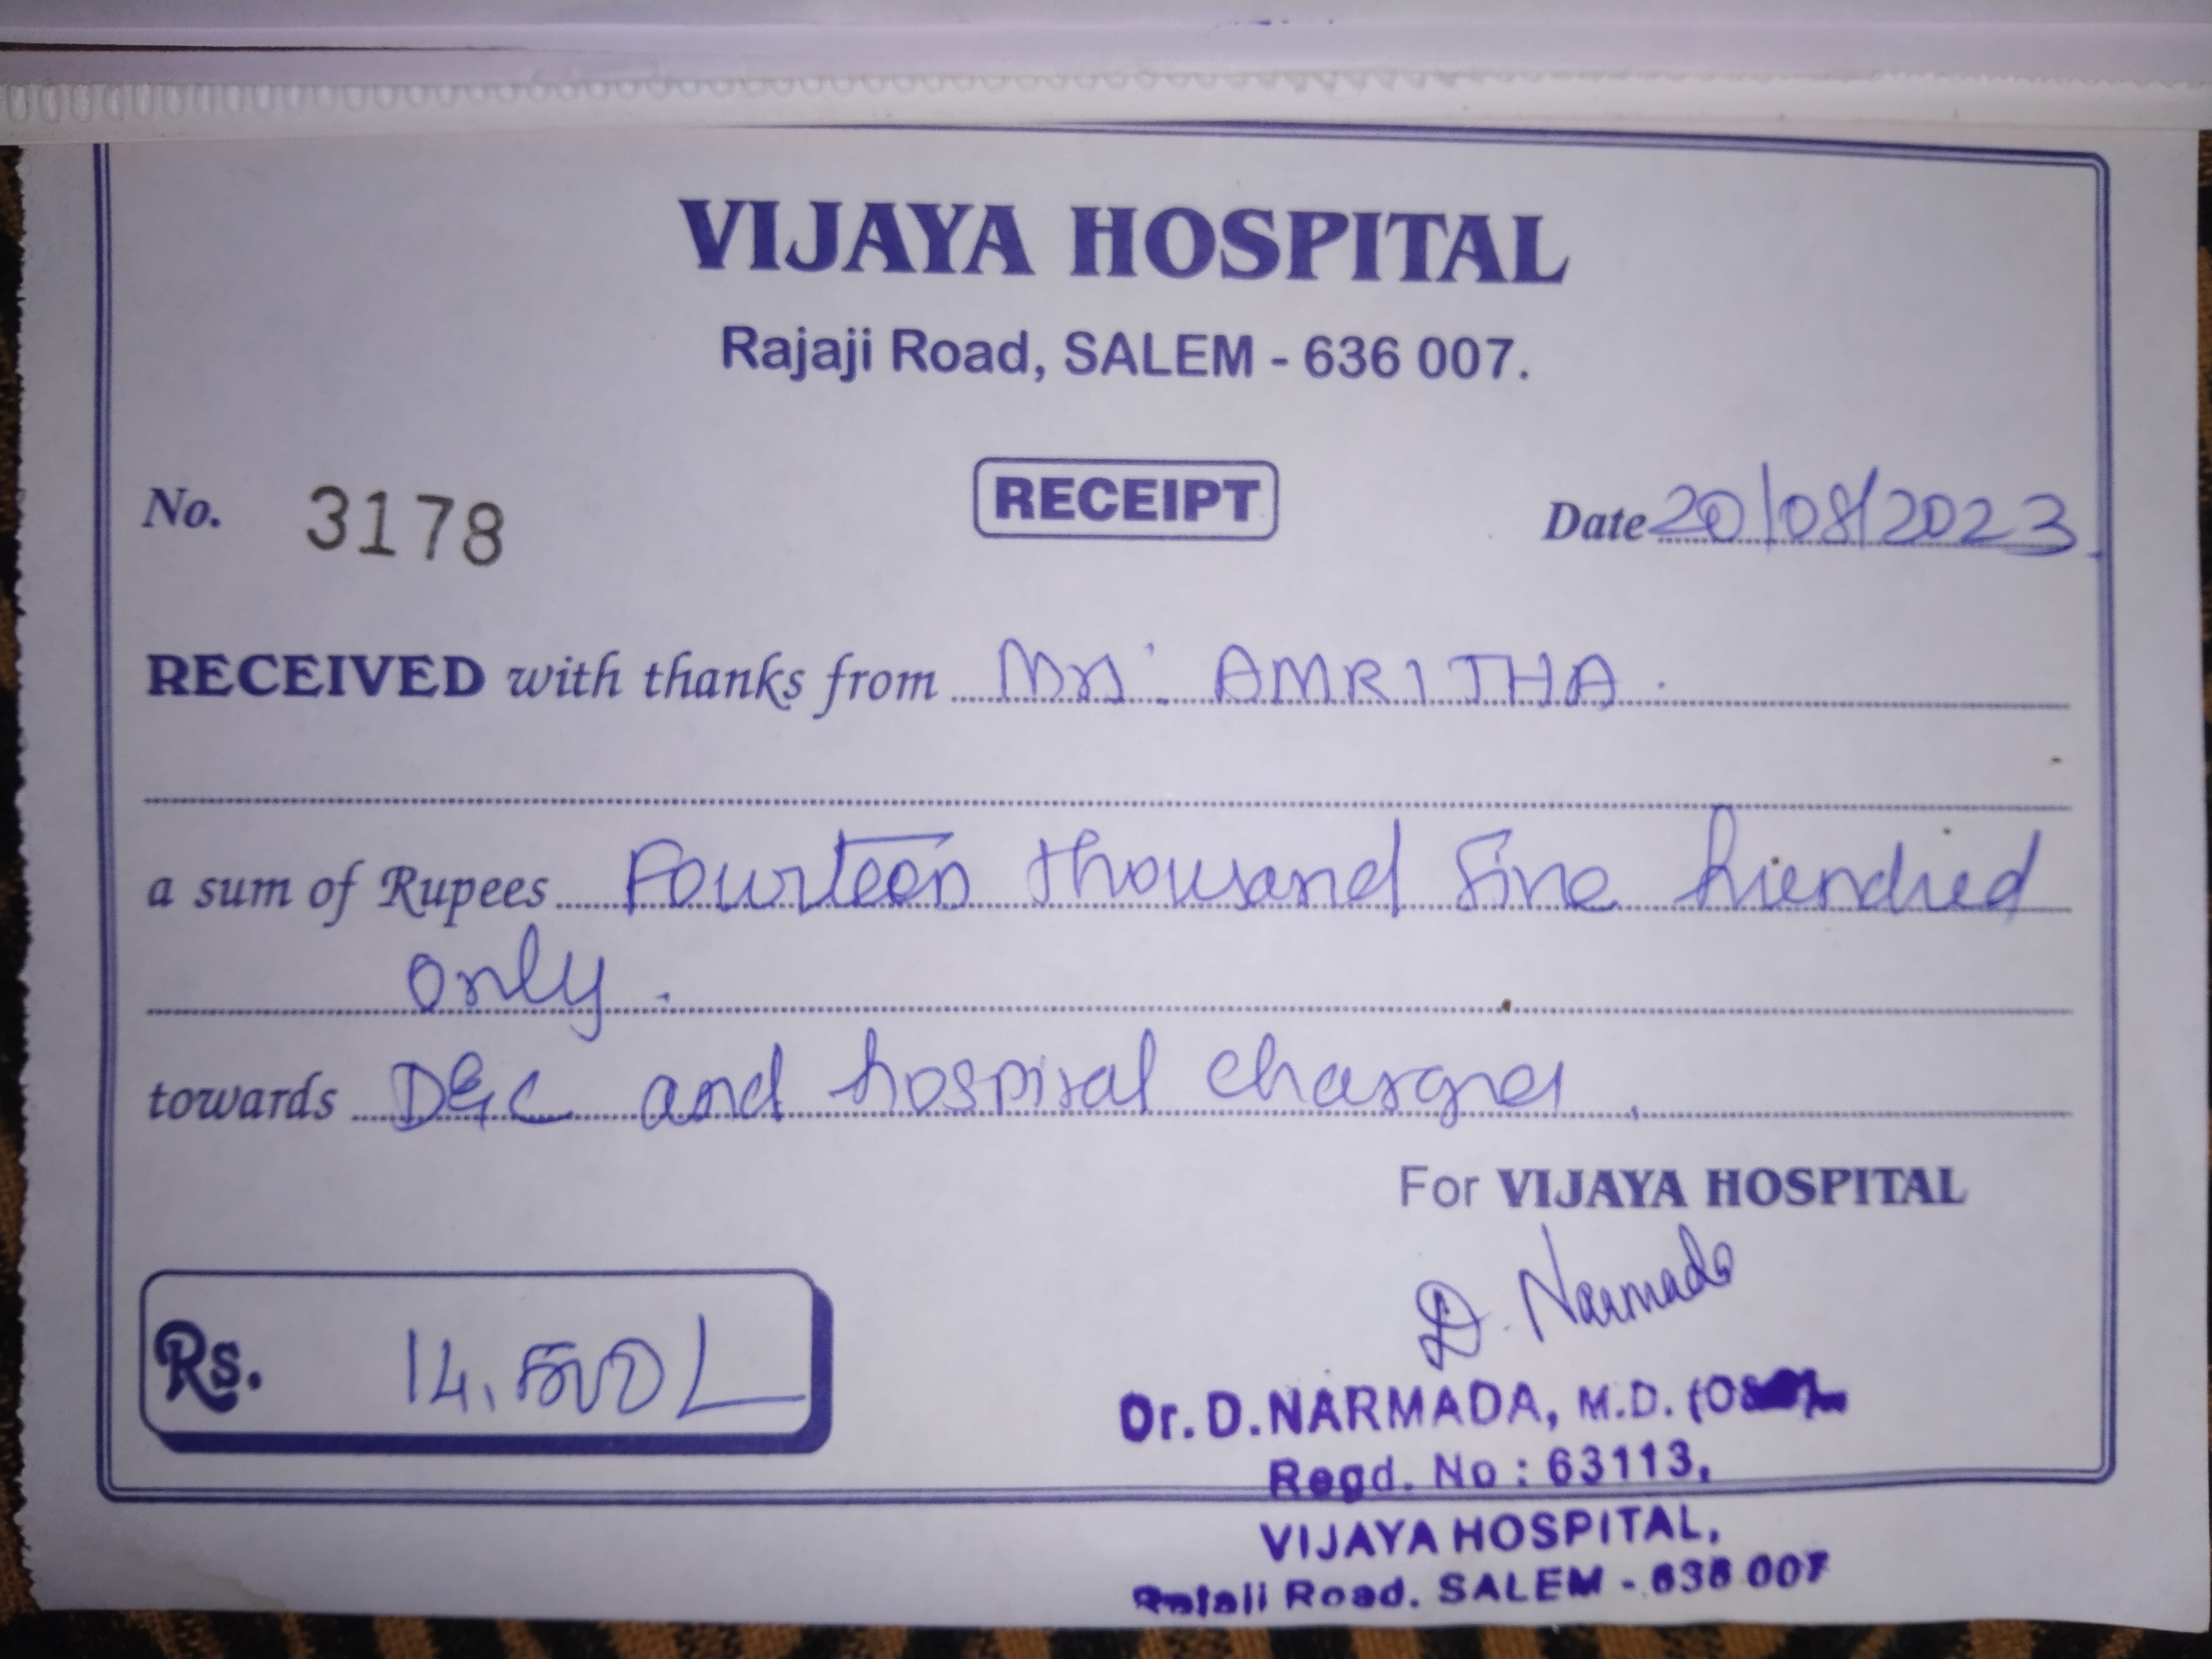 VIJAYA HOSPITAL
Rajaji Road, SALEM - 636 007.
No. 3178 RECEIPT Date 20/08/2023
RECEIVED with thanks from Mrs. AMRITHA.
a sum of Rupees Fourteen thousand Five hundred
only.
towards D&C and hospital charges.
For VIJAYA HOSPITAL
D. Narmada
Rs. 14,500/-
Dr. D. NARMADA, M.D.
Regd. No : 63113,
VIJAYA HOSPITAL,
Rajaji Road. SALEM - 636 007